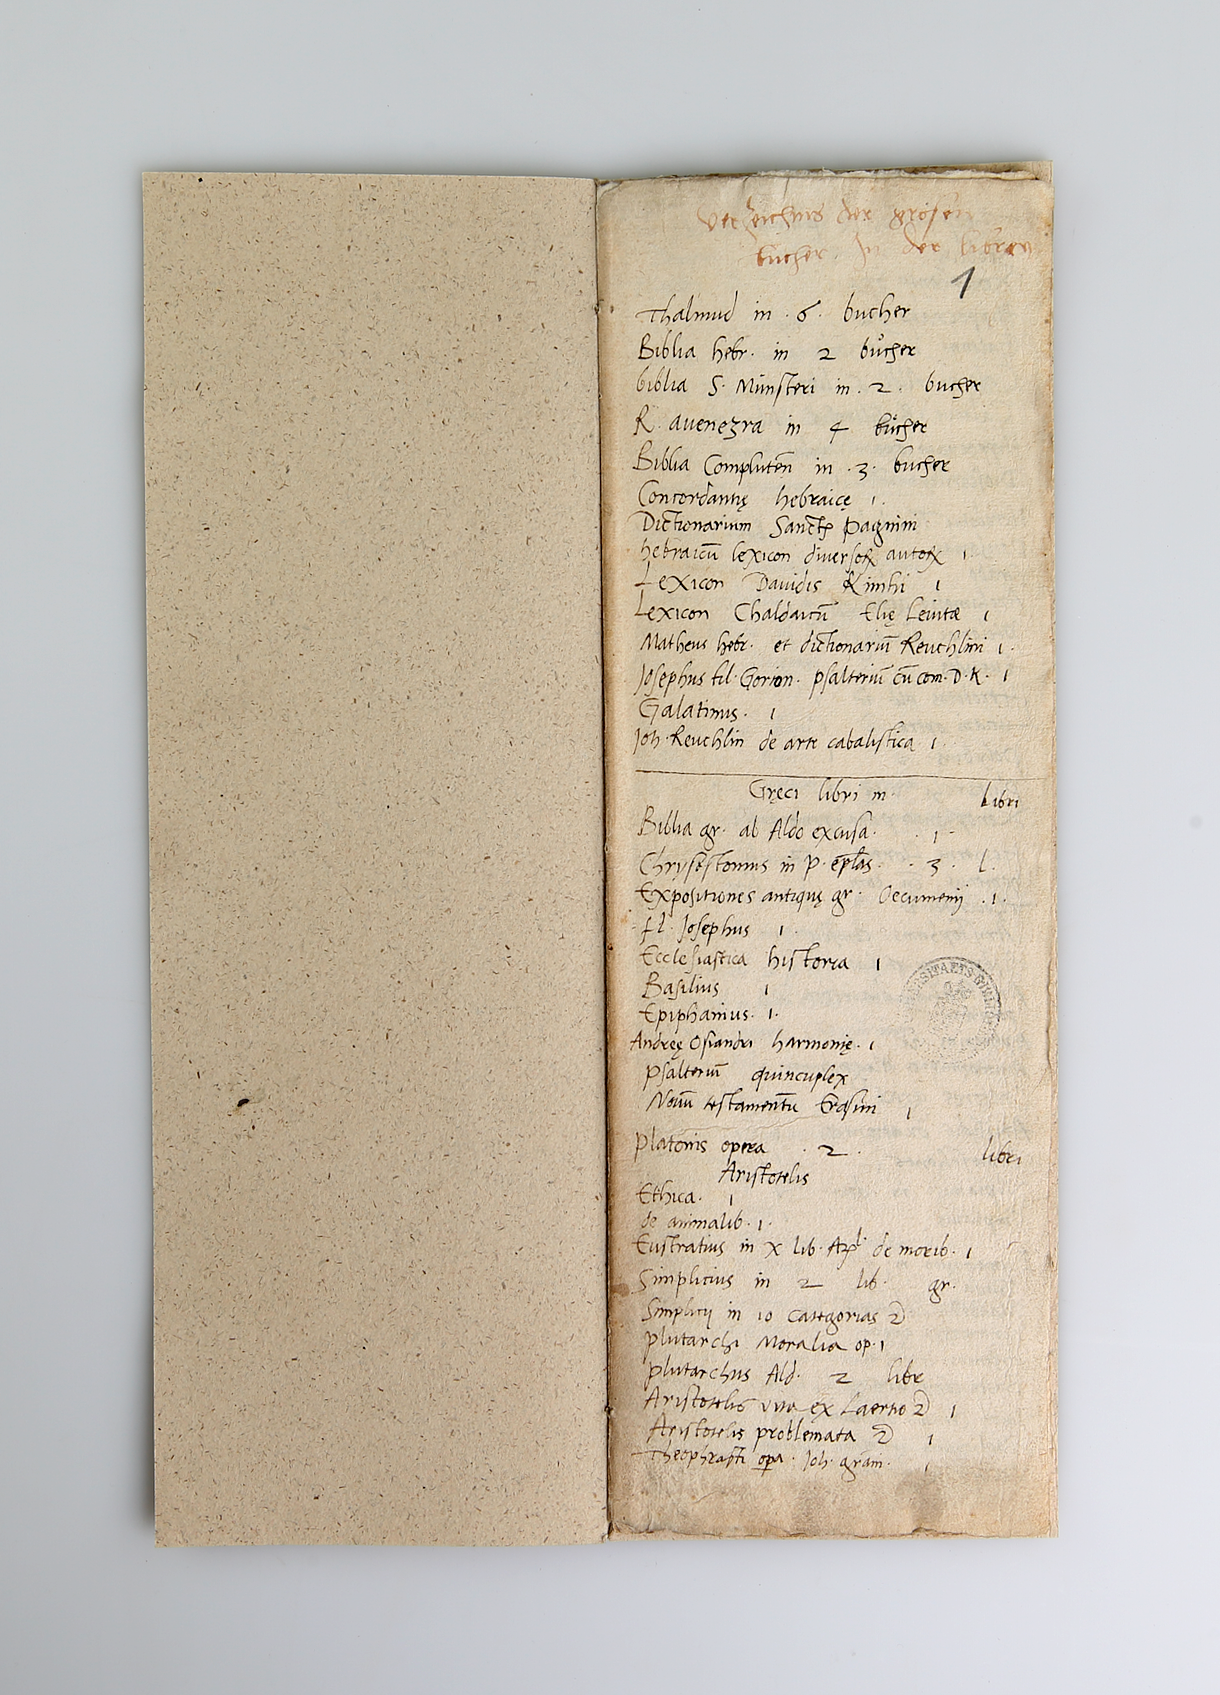 Verzeichnis der grosen
bucher. In der librey
1
Thalmud in . 6 . bucher
Biblia hebr. in 2 bůcher
biblia S. Munsteri in . 2 . bucher
R. avenezra in 4 bůcher
Biblia Compluteñ in . 3 . bucher
Concordantię hebraicę 1 .
Dictionarium Sanctꝭ pagnini
hebraicū lexicon diversoꝝ autoꝝ 1
Lexicon Davidis Kimhi 1
Lexicon Chaldaicū Elię Levitæ 1
Matheus hebr. et dictionariū Reuchlini 1 .
Josephus fil. Gorion. psalteriū cū com. D. K. 1
Galatinus . 1
Joh. Reuchlin de arte cabalistica 1 .
Gręci libri in . libri
Biblia gr. ab Aldo excusa . . 1 .
Chrysostomus in p. ep̄las . . 3 . l.
Expositiones antiquę gr. Oecumenij . 1 .
fl. Josephus 1 .
Ecclesiastica historia 1
Basilius 1
Epiphanius . 1 .
Andreę Osiandri harmonię . 1
psalteriū quincuplex
Novū testamentū Erasmi 1
platonis opera . 2 . libri
Aristotelis
Ethica . 1
de animalib . 1 .
Eustratius in X lib. de morib. 1
Simplicius in 2 lib. gr.
Simplicij in 10 categorias
plutarchi Moralia op. 1
plutarchus Ald. 2 libr
Aristotelis vita ex Laertio 1
Aristotelis problemata 1
Theophrasti opa . Joh. gram. 1